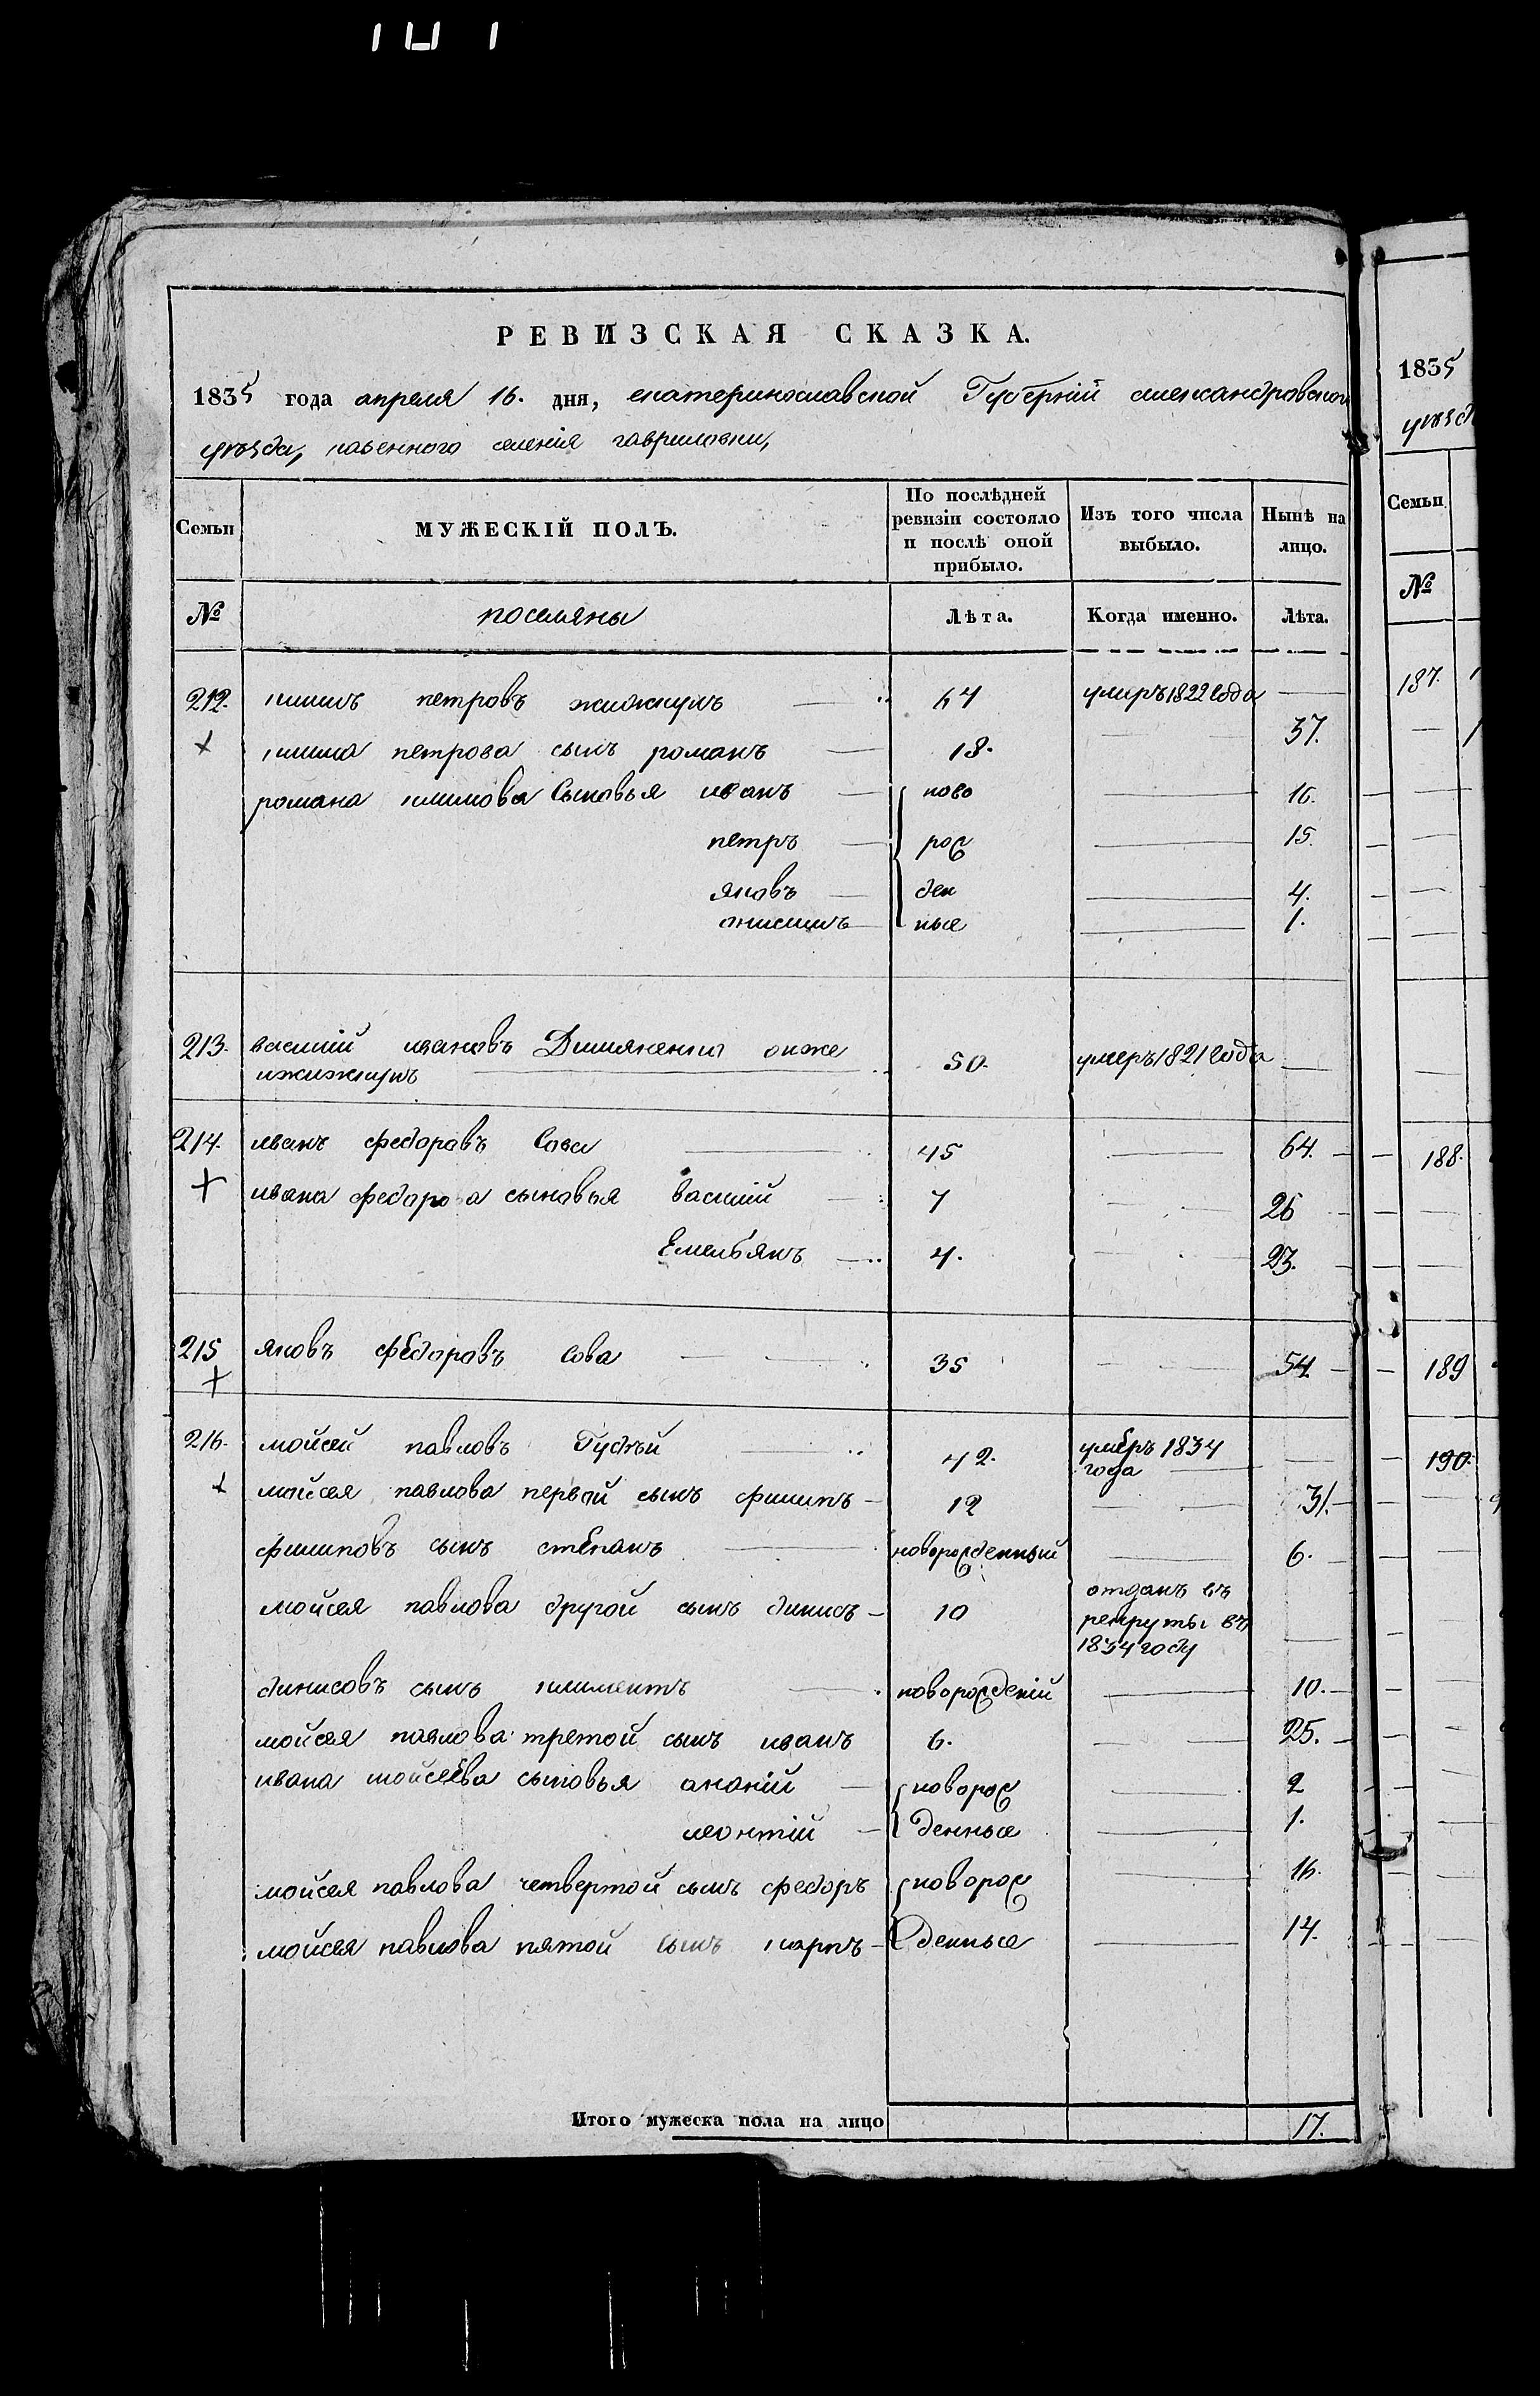 РЕВИЗСКАЯ СКАЗКА.
1835 года апреля 16. дня, екатеринославской Губерніи александровского
уезда, казенного селенія гавриловки,
Семьи МУЖЕСКІЙ ПОЛЪ. По послѣдней ревизіи состояло и послѣ оной прибыло. Изъ того числа выбыло. Нынѣ на лицо.
№ поселяны Лѣта. Когда именно. Лѣта.
212. климъ петровъ 64 умиръ 1822 года
клима петрова сынъ романъ 18. 37.
романа климова Сыновья иванъ ново 16.
петръ рож 15.
яковъ ден 4.
онисимъ ные 1.
213. василій ивановъ онже 50. умеръ 1821 года
214. иванъ федоровъ Сова 45 64.
ивана федорова сыновья василій 7 26
Емельянъ 4. 23.
215 яковъ федоровъ Сова 35 54
216. мойсей павловъ Густый 42. умеръ 1834
года
мойсея павлова первой сынъ филипъ 12 31.
филиповъ сынъ степанъ новорожденный 6.
мойсея павлова другой сынъ динисъ 10 отданъ въ
рекруты въ
1834 году
динисовъ сынъ климентъ новорожденій 10.
мойсея павлова третой сынъ иванъ 6. 25.
ивана мойсеева сыновья ананій новорож 2
леонтій денные 1.
мойсея павлова четвертой сынъ федоръ новорож 16.
мойсея павлова пятой сынъ карпъ денные 14.
Итого мужеска пола на лицо 17.
1835
уезд
Семьи
№
187.
188.
189
190.